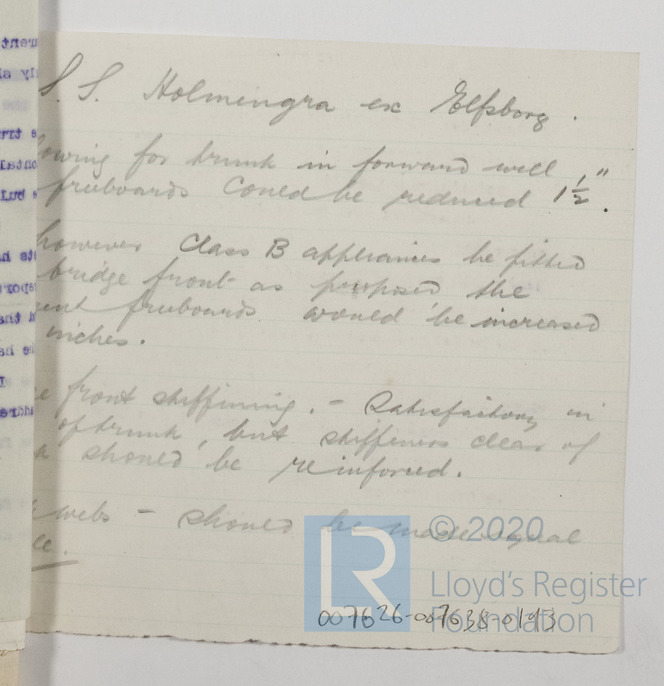 S.S. Holmengra ex Elfsborg.
owing for trunk in forward well
freeboards could be reduced 1½".
however Class B appliances be fitted
bridge front as proposed the
ent freeboards would be increased
inches.
e front stiffening. - Satisfactory in
of trunk, but stiffeners clear of
should be reinforced.
webs - should be made equal
© 2020
LR
Lloyd's Register
Foundation
007626-007638-0193